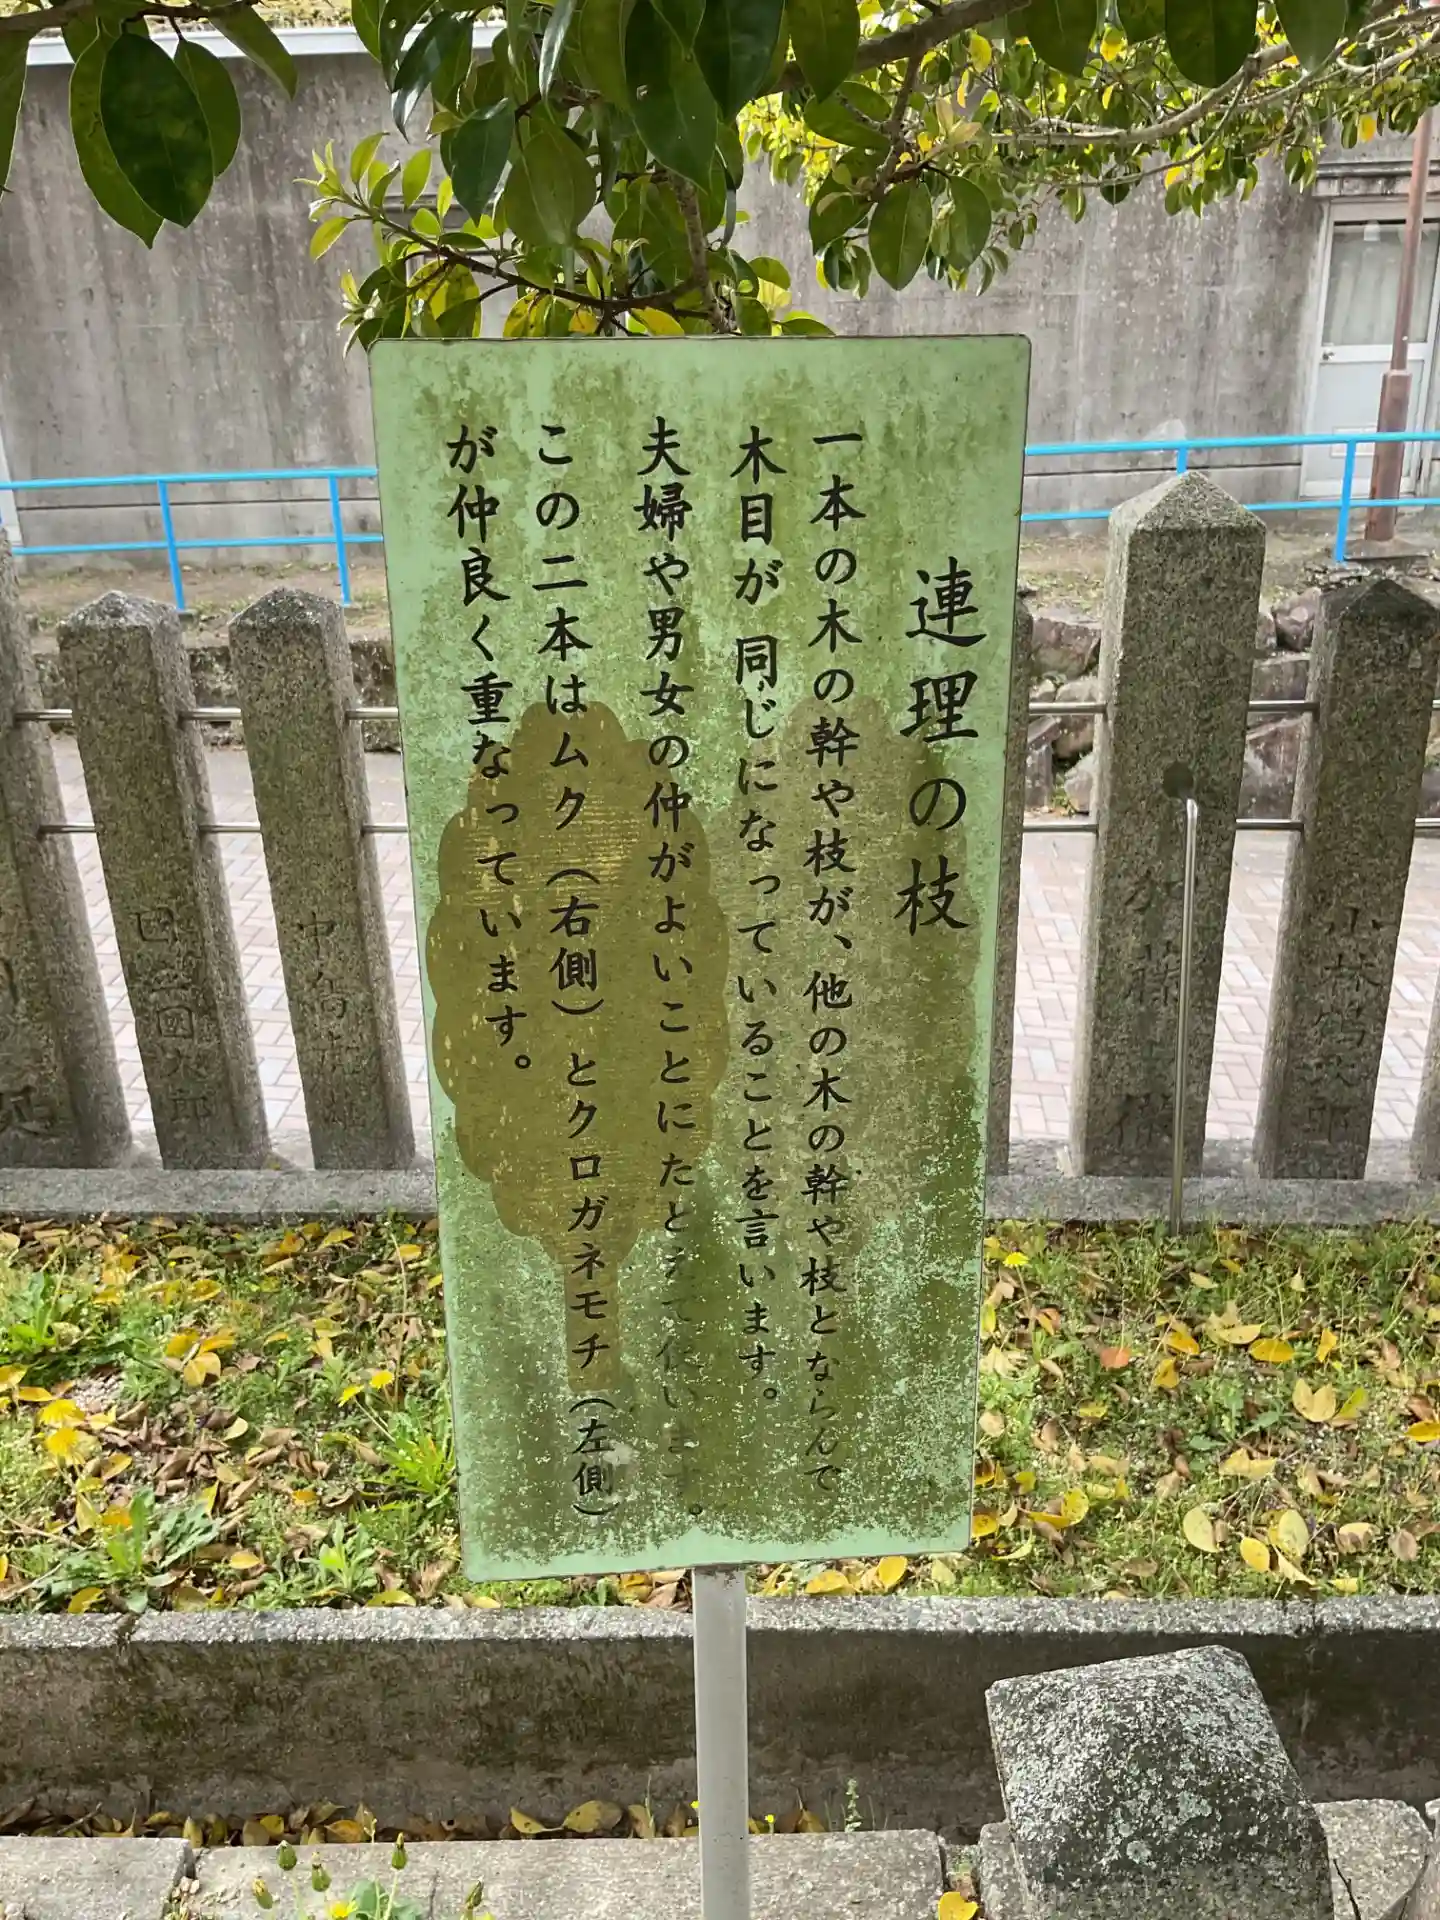 連理の枝
一本の木の幹や枝が、他の木の幹や枝とならんで
木目が同じになっていることを言います。
夫婦や男女の仲がよいことにたとえて使います。
この二本はムク（右側）とクロガネモチ（左側）
が仲良く重なっています。
小林鶴次郎